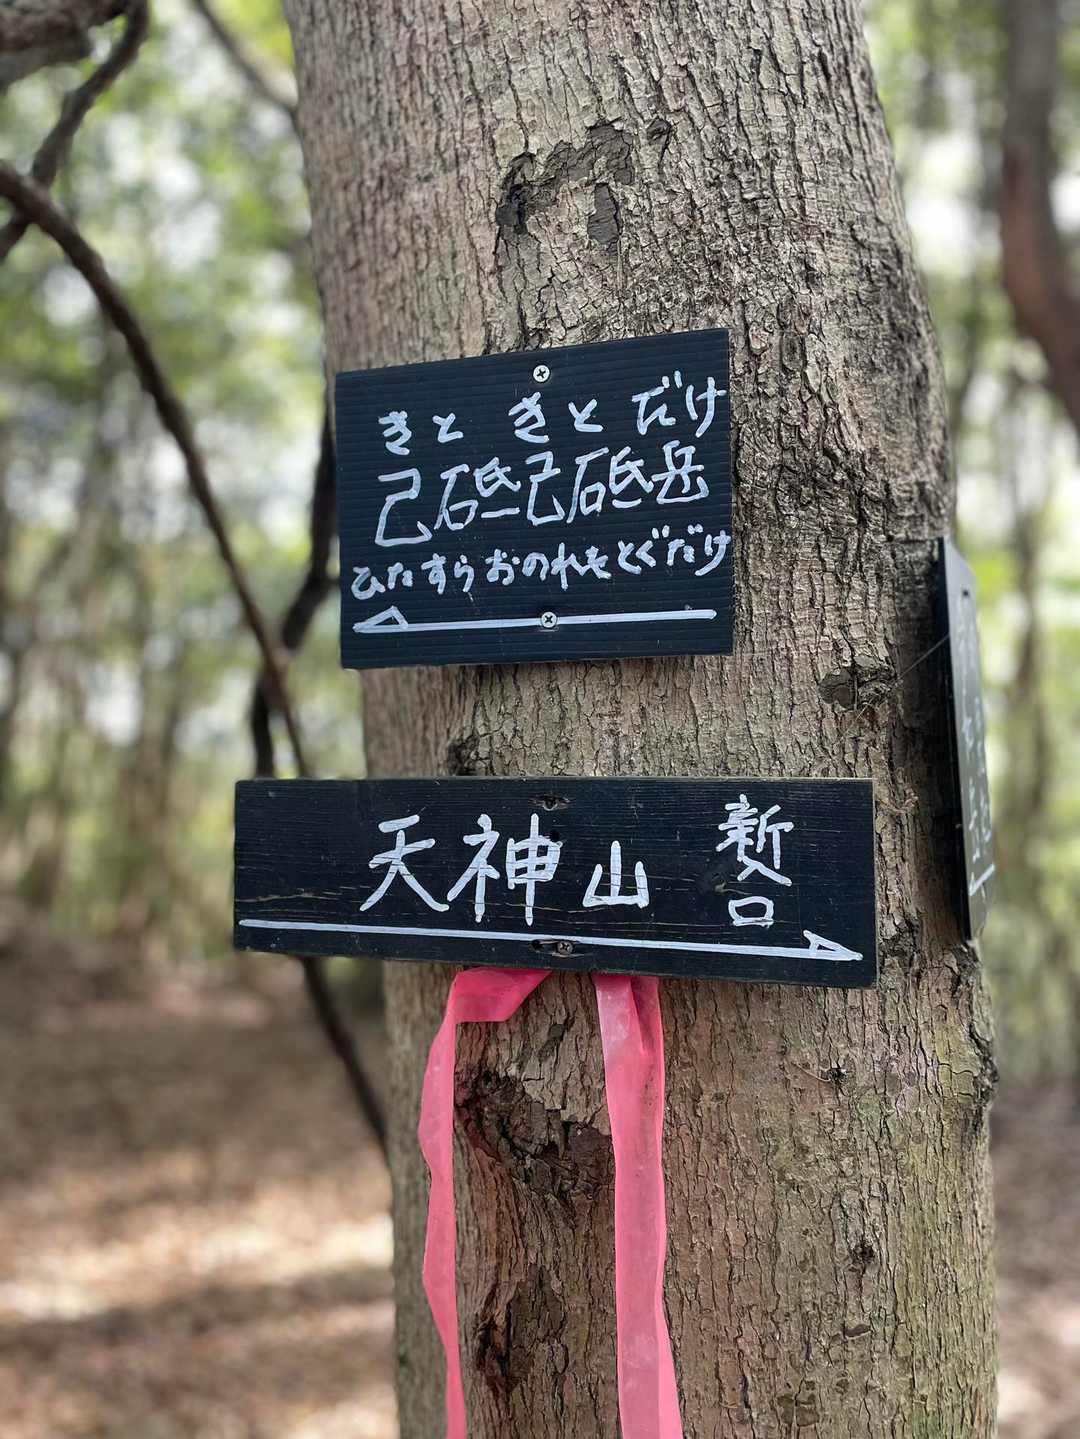 きと きと だけ
己砥己砥岳
ひたすらおのれをとぐだけ
天神山 新口